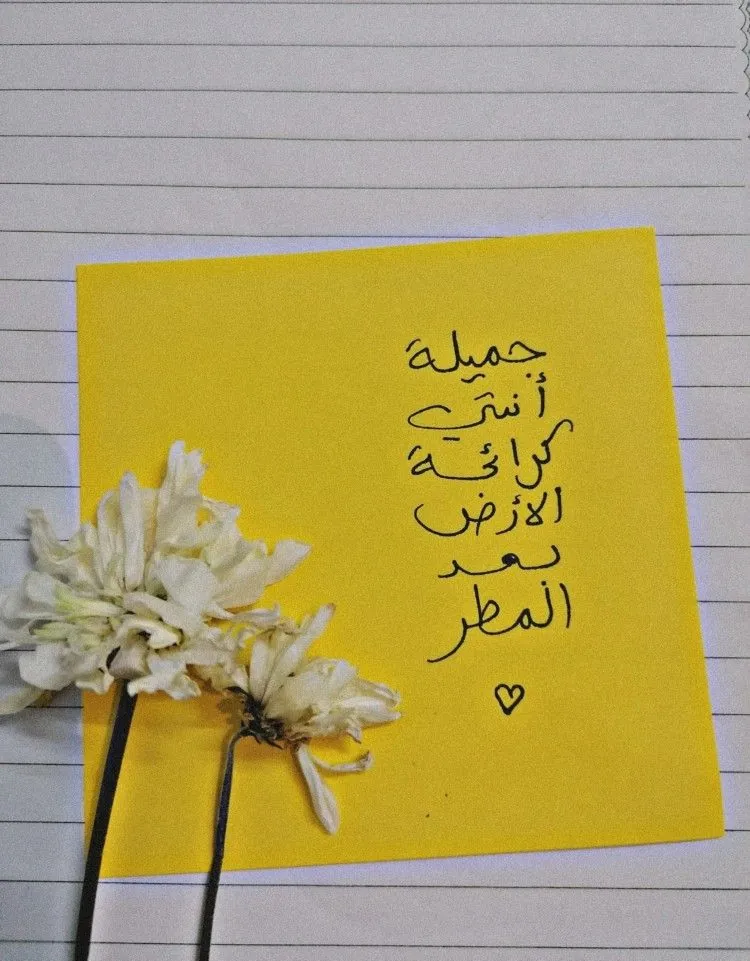 جميلة
أنتي
كرائحة
الأرض
بعد
المطر
♡